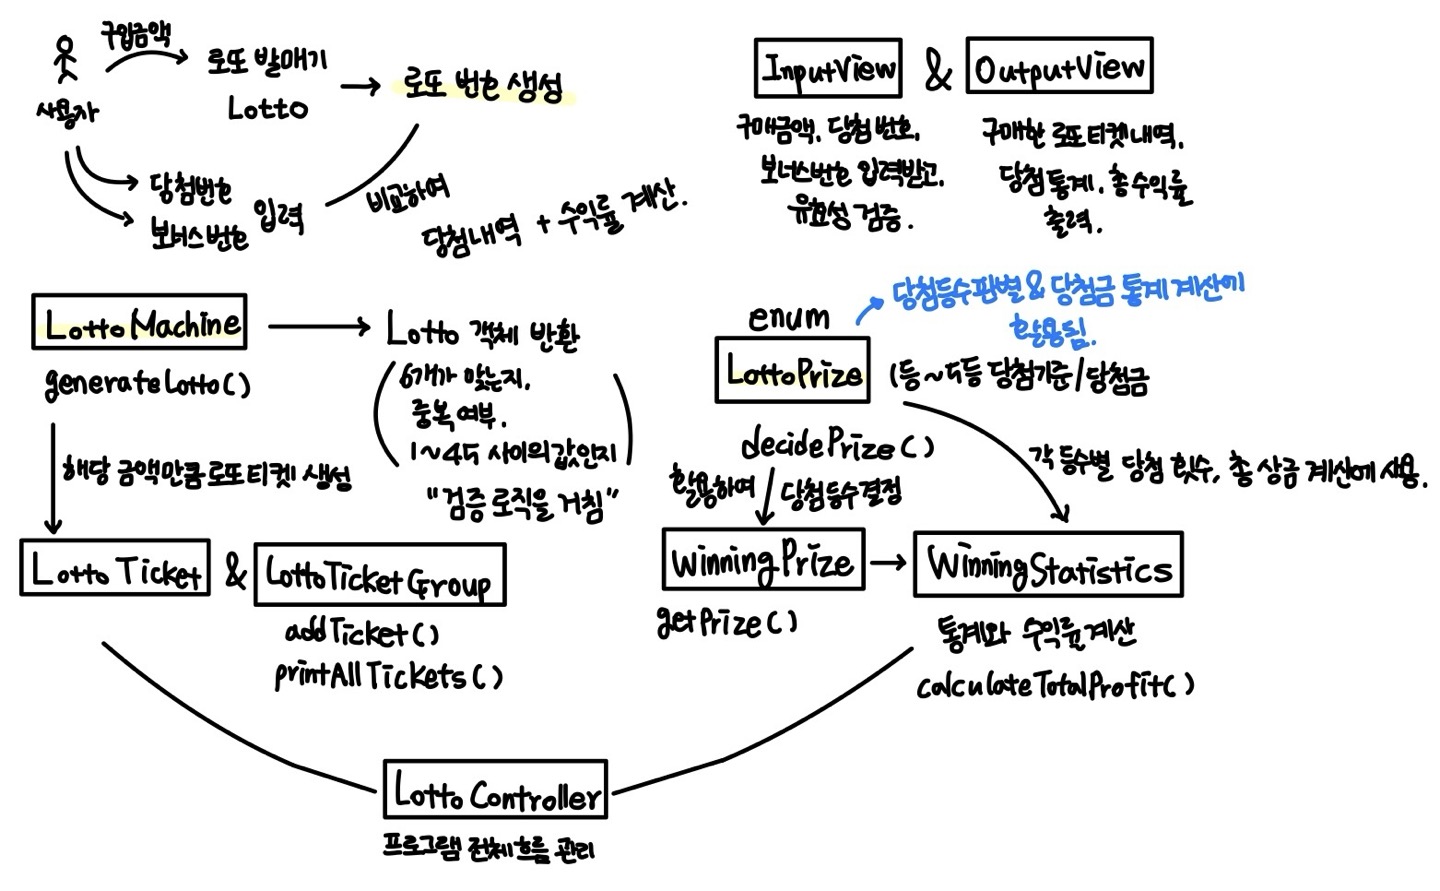 구입금액
사용자
로또 발매기
Lotto
로또 번호 생성
당첨번호
보너스번호
입력
비교하여
당첨내역 + 수익률 계산.
InputView & OutputView
구매금액, 당첨번호,
보너스번호 입력받고,
유효성 검증.
구매한 로또티켓내역,
당첨통계, 총수익률
출력.
LottoMachine
generateLotto()
Lotto 객체 반환
6개가 맞는지,
중복여부,
1~45 사이의값인지
"검증 로직을 거침"
해당 금액만큼로또티켓 생성
Lotto Ticket & LottoTicketGroup
addTicket()
printAllTickets()
당첨등수판별 & 당첨금 통계 계산에
활용됨.
enum
LottoPrize
1등~5등 당첨기준/당첨금
decidePrize()
활용하여
당첨등수결정
각 등수별 당첨 횟수, 총 상금 계산에 사용.
WinningPrize
getPrize()
WinningStatistics
통계와 수익률계산
calculateTotalProfit()
Lotto Controller
프로그램 전체흐름 관리